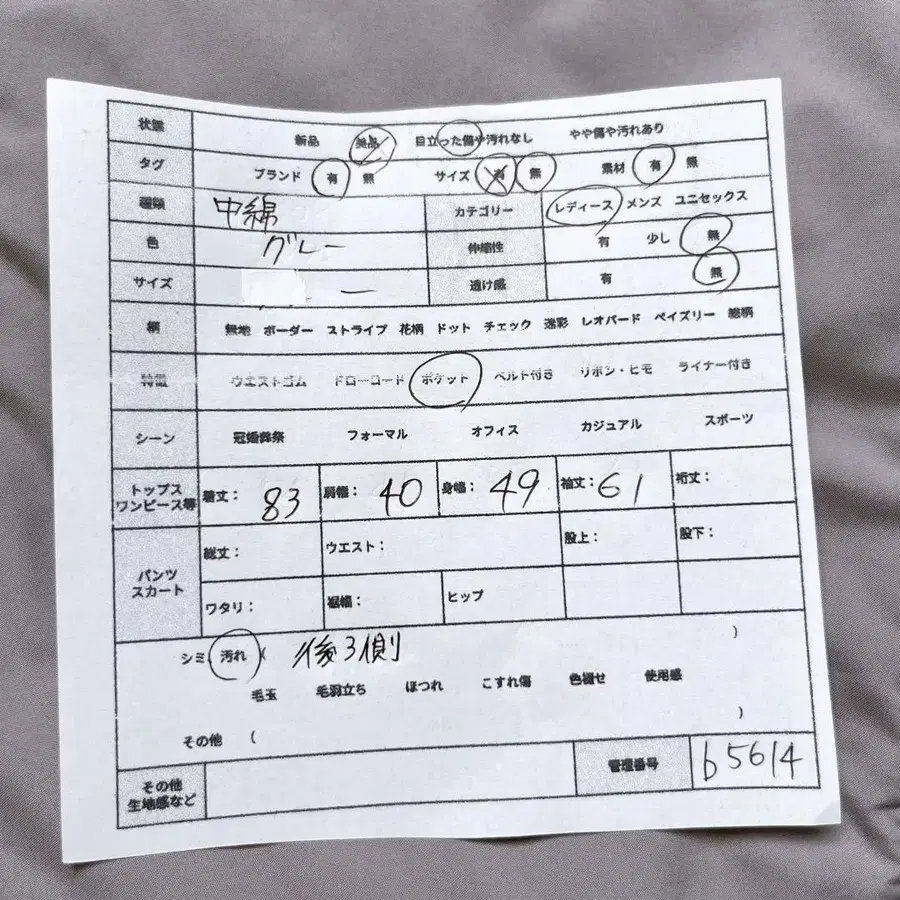 状態 新品 美品 目立った傷や汚れなし やや傷や汚れあり
タグ ブランド 有 無 サイズ 有 無 素材 有 無
種類 中綿 カテゴリー レディース メンズ ユニセックス
色 グレー 伸縮性 有 少し 無
サイズ ー 透け感 有 無
柄 無地 ボーダー ストライプ 花柄 ドット チェック 迷彩 レオパード ペイズリー 総柄
特徴 ウエストゴム ドローコード ポケット ベルト付き リボン・ヒモ ライナー付き
シーン 冠婚葬祭 フォーマル オフィス カジュアル スポーツ
トップス
ワンピース等 着丈: 83 肩幅: 40 身幅: 49 袖丈: 61 裄丈:
パンツ
スカート 総丈: ウエスト: 股上: 股下:
ワタリ: 裾幅: ヒップ
シミ 汚れ ( 後ろ側 )
毛玉 毛羽立ち ほつれ こすれ傷 色褪せ 使用感
その他 ( )
その他
生地感など 管理番号 b5614